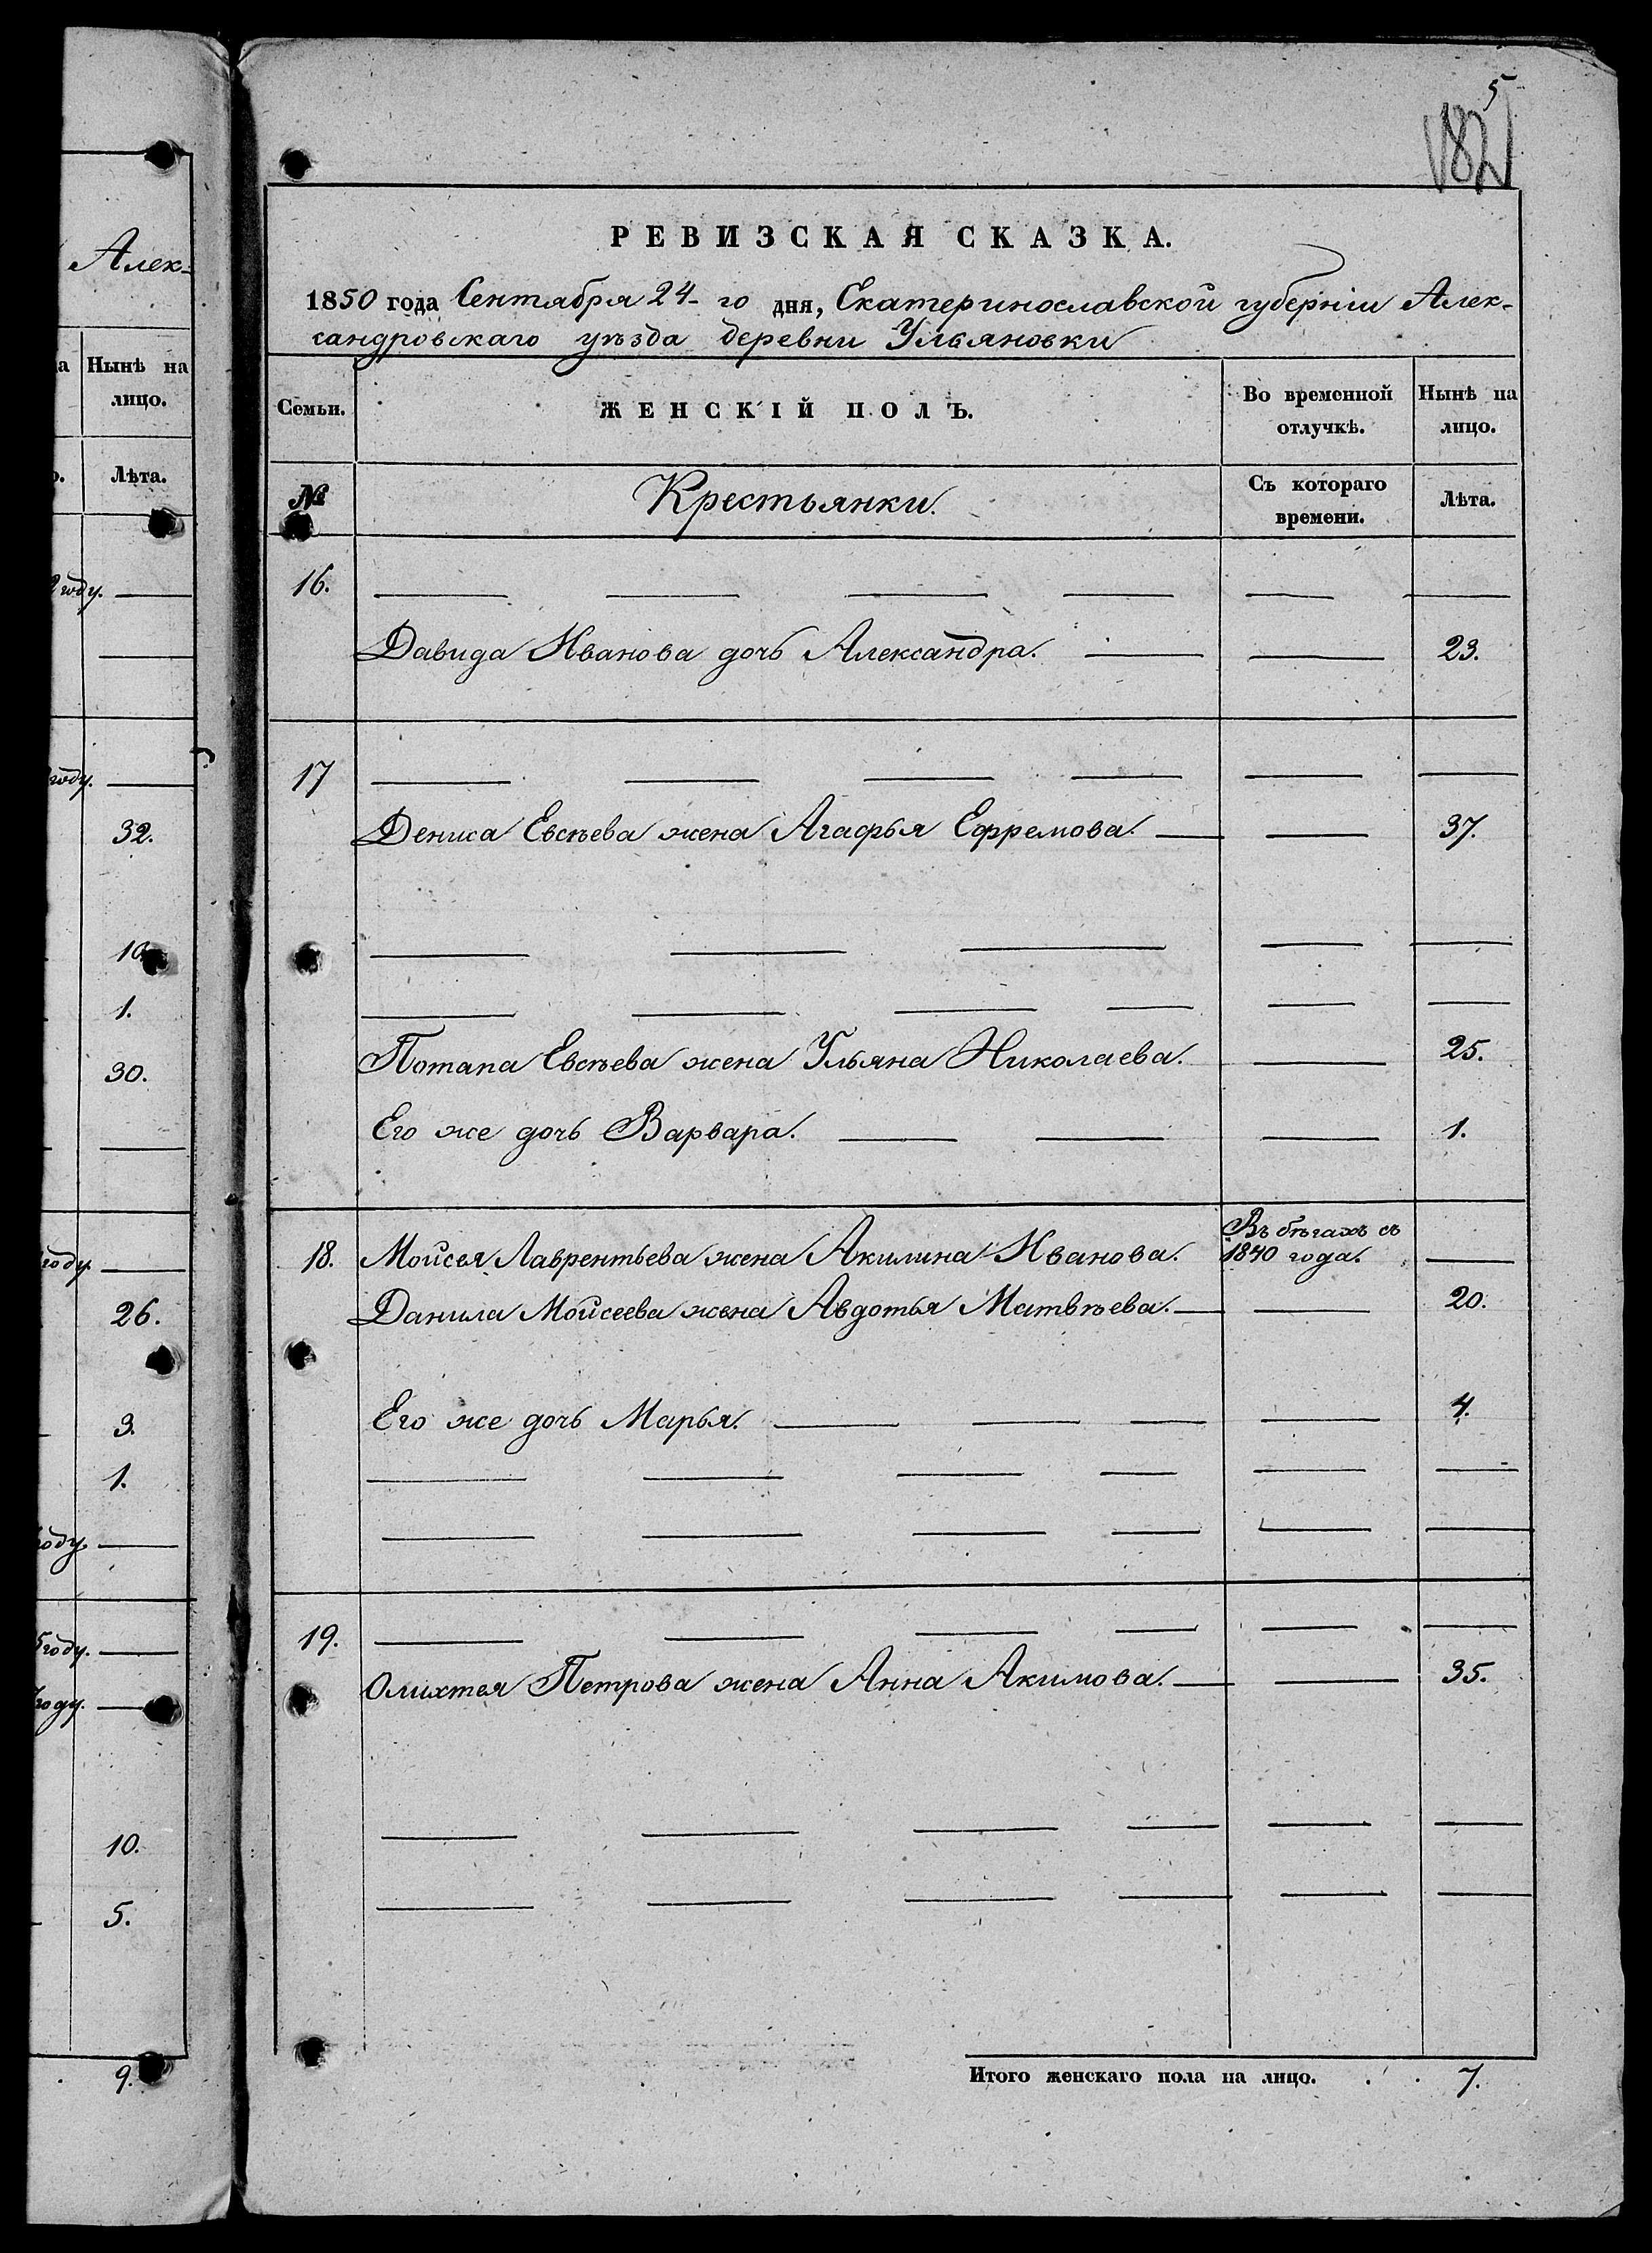 Алек-
а Нынѣ на
лицо.
о. Лѣта.
году.
году.
32.
10.
1.
30.
году
26.
3.
1.
году.
году.
году.
10.
5.
9.
5
182
РЕВИЗСКАЯ СКАЗКА.
1850 года Сентября 24-го дня, Екатеринославской губерніи Алек-
сандровскаго уѣзда деревни Ульяновки
Семьи. ЖЕНСКІЙ ПОЛЪ. Во временной отлучкѣ. Нынѣ на лицо.
№ Крестьянки. Съ котораго времени. Лѣта.
16. — — — — — —
Давида Иванова дочь Александра. — — 23.
17 — — — — — —
Дениса Евсѣева жена Агафья Ефремова. — — 37.
— — — — —
— — — — — —
Потапа Евсѣева жена Ульяна Николаева. — 25.
Его же дочь Варвара. — — — 1.
18. Мойсея Лаврентьева жена Акилина Иванова. Въ бѣгахъ съ 1840 года. —
Данила Мойсеева жена Авдотья Матвѣева. — — 20.
Его же дочь Марья. — — — — 4.
— — — — — —
— — — — — —
19. — — — — — —
Олихтея Петрова жена Анна Акимова. — — 35.
— — — — — —
— — — — — —
Итого женскаго пола на лицо. . . 7.